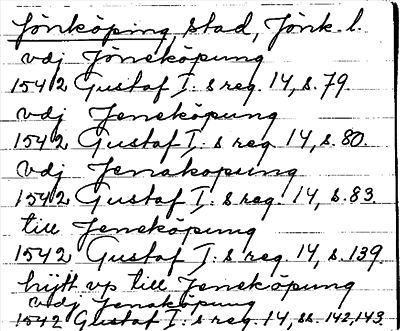 Jönköping, stad, Jönk. l.
vdj Jöneköpung
1542 Gustaf I:s reg. 14, s. 79.
vdj Jeneköpung
1542 Gustaf I:s reg. 14, s. 80.
vdj Jenakopung
1542 Gustaf I:s reg. 14, s. 83.
till Jeneköpung
1542 Gustaf I:s reg. 14, s. 139.
hijtt vp till Jeneköpung
vdj Jenakopung
1542 Gustaf I:s reg. 14, ss. 142, 143